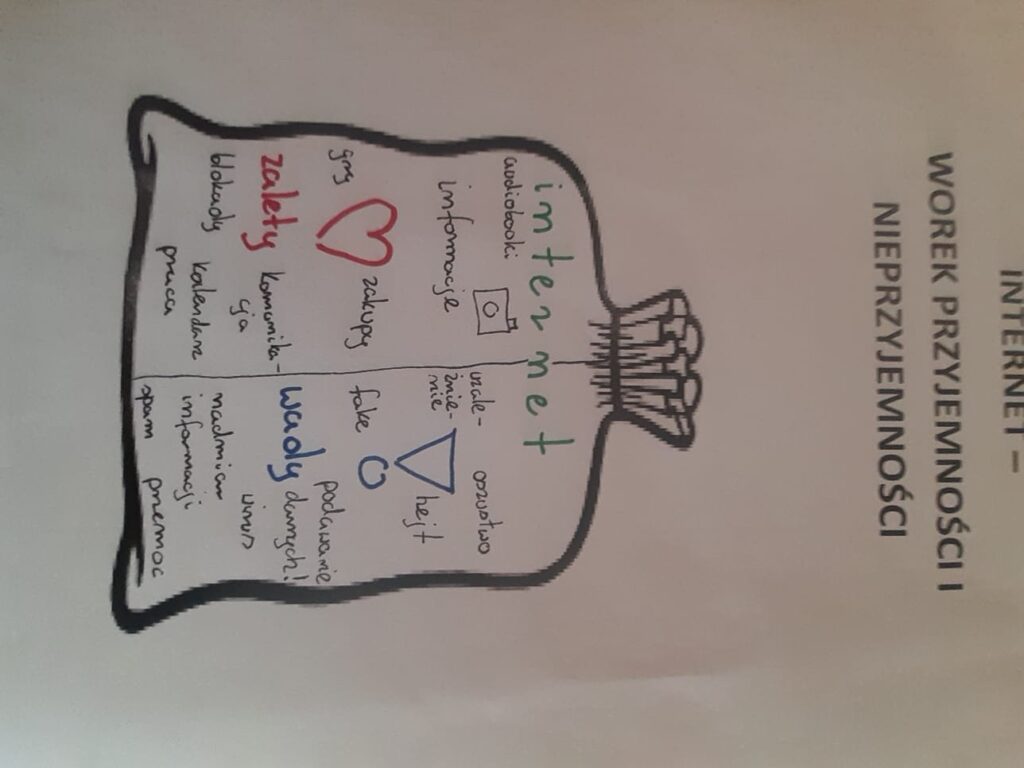 INTERNET –
WOREK PRZYJEMNOŚCI I
NIEPRZYJEMNOŚCI
internet
audiobooki
informacje
zakupy
gry
zalety
komunika-
cja
blokady
kalendarz
praca
uzale-
żnie-
nie
oszustwo
hejt
fake
podawanie
danych!
wady
wirus
nadmiar
informacji
spam
przemoc